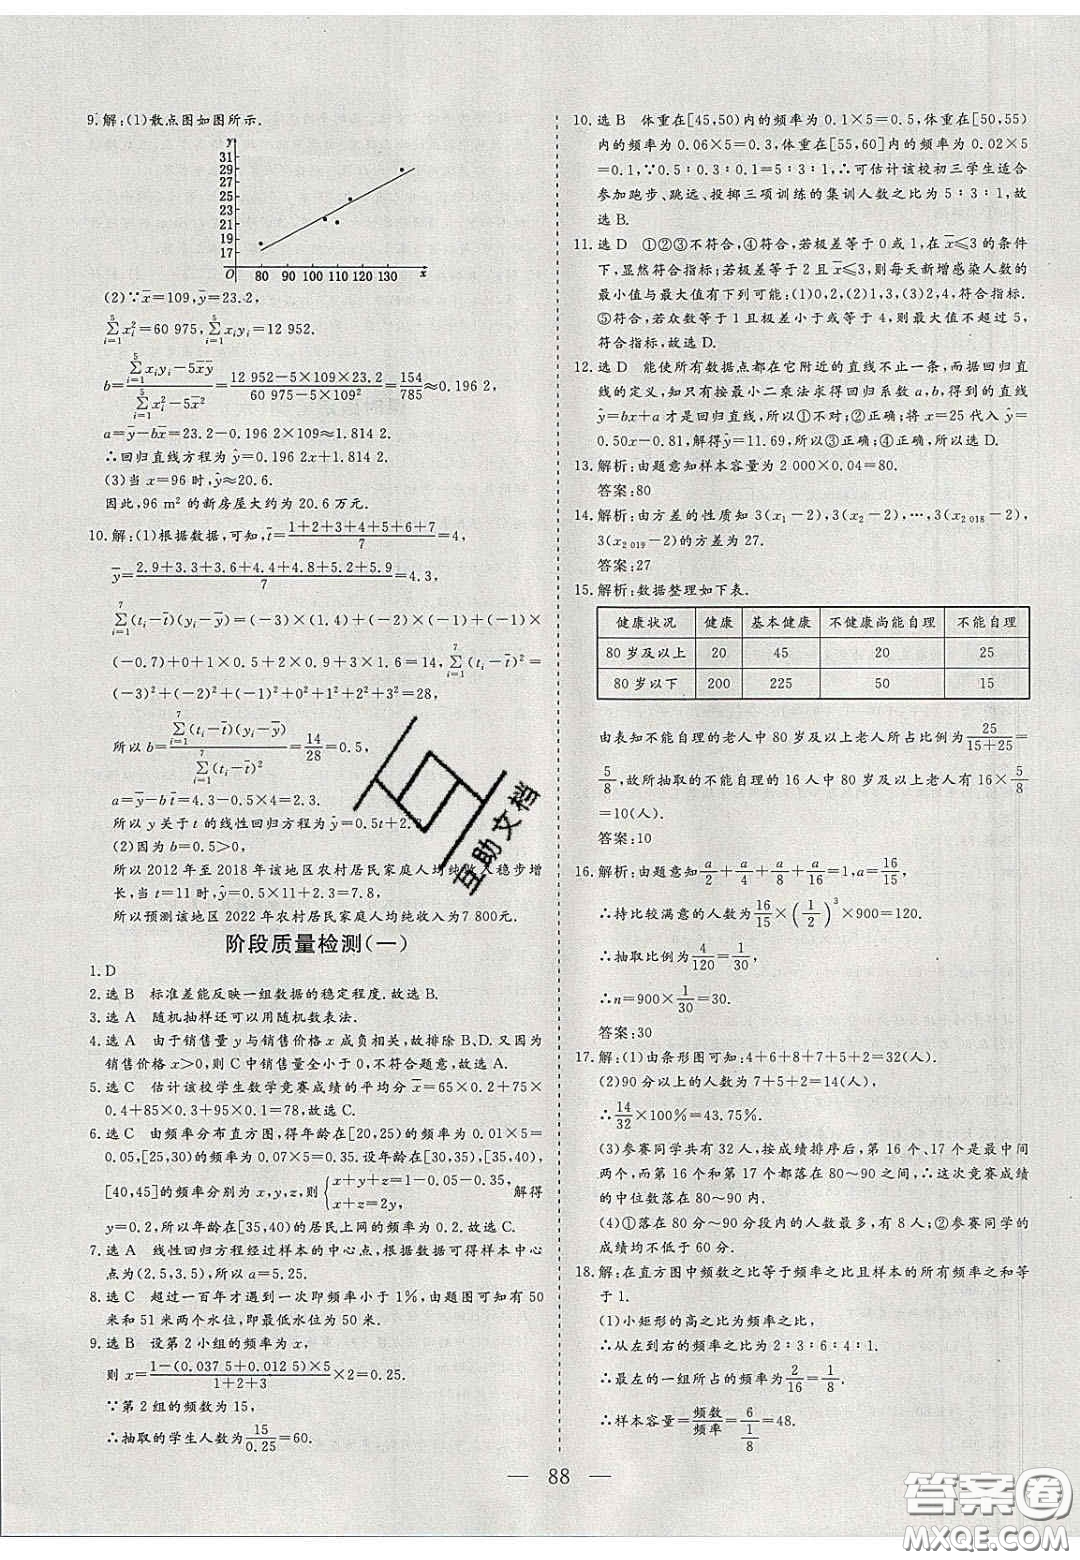 9.解:(1)散点图如图所示.
y
31
29
27
25
23
21
19
17
O 80 90 100 110 120 130 x
(2)∵x̄=109,ȳ=23.2,
5∑i=1 xᵢ²=60 975,5∑i=1 xᵢyᵢ=12 952.
b=(5∑i=1 xᵢyᵢ-5x̄ȳ)/(5∑i=1 xᵢ²-5x̄²)=(12 952-5×109×23.2)/(60 975-5×109²)=154/785≈0.196 2,
a=ȳ-bx̄=23.2-0.196 2×109≈1.814 2.
∴回归直线方程为ŷ=0.196 2x+1.814 2.
(3)当 x=96 时,ŷ≈20.6.
因此,96 m² 的新房屋大约为 20.6 万元.
10.解:(1)根据数据,可知,t̄=(1+2+3+4+5+6+7)/7=4,
ȳ=(2.9+3.3+3.6+4.4+4.8+5.2+5.9)/7=4.3,
7∑i=1(tᵢ-t̄)(yᵢ-ȳ)=(-3)×(1.4)+(-2)×(-1)+(-1)×
(-0.7)+0+0.5+2×0.9+3×1.6=14,7∑i=1(tᵢ-t̄)²=
(-3)²+(-2)²+(-1)²+0²+1²+2²+3²=28,
所以 b=7∑i=1(tᵢ-t̄)(yᵢ-ȳ)/7∑i=1(tᵢ-t̄)²=14/28=0.5,
a=ȳ-b t̄=4.3-0.5×4=2.3,
所以 y 关于 t 的线性回归方程为 ŷ=0.5t+2.3
(2)因为 b=0.5>0,
所以 2012 年至 2018 年该地区农村居民家庭人均纯收入稳步增
长,当 t=11 时,ŷ=0.5×11+2.3=7.8,
所以预测该地区 2022 年农村居民家庭人均纯收入为 7 800元.
阶段质量检测(一)
1.D
2.选 B 标准差能反映一组数据的稳定程度.故选 B.
3.选 A 随机抽样还可以用随机数表法.
4.选 A 由于销售量 y 与销售价格 x 成负相关,故排除 B、D.又因为
销售价格 x>0,则 C 中销售量全小于 0,不符合题意,故选 A.
5.选 C 估计该校学生数学竞赛成绩的平均分 x̄=65×0.2+75×
0.4+85×0.3+95×0.1=78,故选 C.
6.选 C 由频率分布直方图,得年龄在[20,25)的频率为 0.01×5=
0.05,[25,30)的频率为 0.07×5=0.35.设年龄在[30,35),[35,40),
[40,45]的频率分别为 x,y,z,则{x+y+z=1-0.05-0.35, x+z=2y, 解得
y=0.2,所以年龄在[35,40)的居民上网的频率为 0.2.故选 C.
7.选 A 线性回归方程经过样本的中心点,根据数据可得样本中心
点为(2.5,3.5),所以 a=5.25.
8.选 C 超过一百年才遇到一次即频率小于 1%,由题图可知有 50
米和 51 米两个水位,即最低水位为 50 米.
9.选 B 设第 2 小组的频率为 x,
则 x=(1-(0.037 5+0.012 5)×5)/(1+2+3)×2=0.25.
∵第 2 组的频数为 15,
∴抽取的学生人数为15/0.25=60.
10.选 B 体重在[45,50)内的频率为 0.1×5=0.5,体重在[50,55)
内的频率为 0.06×5=0.3,体重在[55,60]内的频率为 0.02×5
=0.1,∵0.5∶0.3∶0.1=5∶3∶1,∴可估计该校初三学生适合
参加跑步、跳远、投掷三项训练的集训人数之比为 5∶3∶1,故
选 B.
11.选 D ①②③不符合,④符合,若极差等于 0 或 1,在 x̄≤3 的条件
下,显然符合指标;若极差等于 2 且 x̄≤3,则每天新增感染人数的
最小值与最大值有下列可能:(1)0,2,(2)1,3,(3)2,4,符合指标.
⑤符合,若众数等于 1 且极差小于或等于 4,则最大值不超过 5,
符合指标,故选 D.
12.选 D 能使所有数据点都在它附近的直线不止一条,而据回归直
线的定义,知只有按最小二乘法求得回归系数 a,b,得到的直线
ŷ=bx+a 才是回归直线,所以①不对;②正确;将 x=25 代入 ŷ=
0.50x-0.81,解得ŷ=11.69,所以③正确;④正确,所以选 D.
13.解析:由题意知样本容量为 2 000×0.04=80.
答案:80
14.解析:由方差的性质知 3(x₁-2),3(x₂-2),…,3(x₂ ₀₁₈-2),
3(x₂ ₀₁₉-2)的方差为 27.
答案:27
15.解析:数据整理如下表.
健康状况 健康 基本健康 不健康尚能自理 不能自理
80 岁及以上 20 45 20 25
80 岁以下 200 225 50 15
由表知不能自理的老人中 80 岁及以上老人所占比例为25/(15+25)=
5/8,故所抽取的不能自理的 16 人中 80 岁及以上老人有 16×5/8
=10(人).
答案:10
16.解析:由题意知a/2+a/4+a/8+a/16=1,a=16/15,
∴持比较满意的人数为16/15×(1/2)³×900=120.
∴抽取比例为4/120=1/30,
∴n=900×1/30=30.
答案:30
17.解:(1)由条形图可知:4+6+8+7+5+2=32(人).
(2)90 分以上的人数为 7+5+2=14(人),
∴14/32×100%=43.75%.
(3)参赛同学共有 32 人,按成绩排序后,第 16 个、17 个是最中间
两个,而第 16 个和第 17 个都落在 80~90 之间,∴这次竞赛成绩
的中位数落在 80~90 分.
(4)①落在 80 分~90 分段内的人数最多,有 8 人;②参赛同学的
成绩均不低于 60 分.
18.解:在直方图中频数之比等于频率之比且样本的所有频率之和等
于 1.
(1)小矩形的高之比为频率之比,
∴从左到右的频率之比为 2∶3∶6∶4∶1.
∴最左的一组所占的频率为2/16=1/8,
∴样本容量=频数/频率=6/(1/8)=48.
88
互助文档
答案圈
MXQE.COM